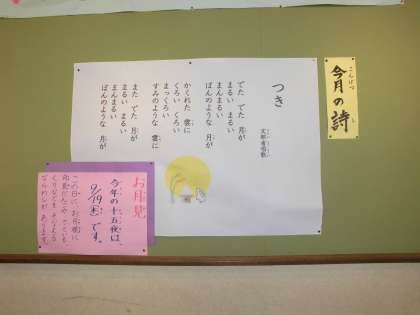 こんげつ
今月の詩
し
つき
文部省唱歌
でた でた 月が
まるい まるい
まんまるい
ぼんのような 月が
かくれた 雲に
くろい くろい
まっくろい
すみのような 雲に
また でた 月が
まるい まるい
まんまるい
ぼんのような 月が
お月見
今年の十五夜は、
9/19(木)です。
この日に、お月様に